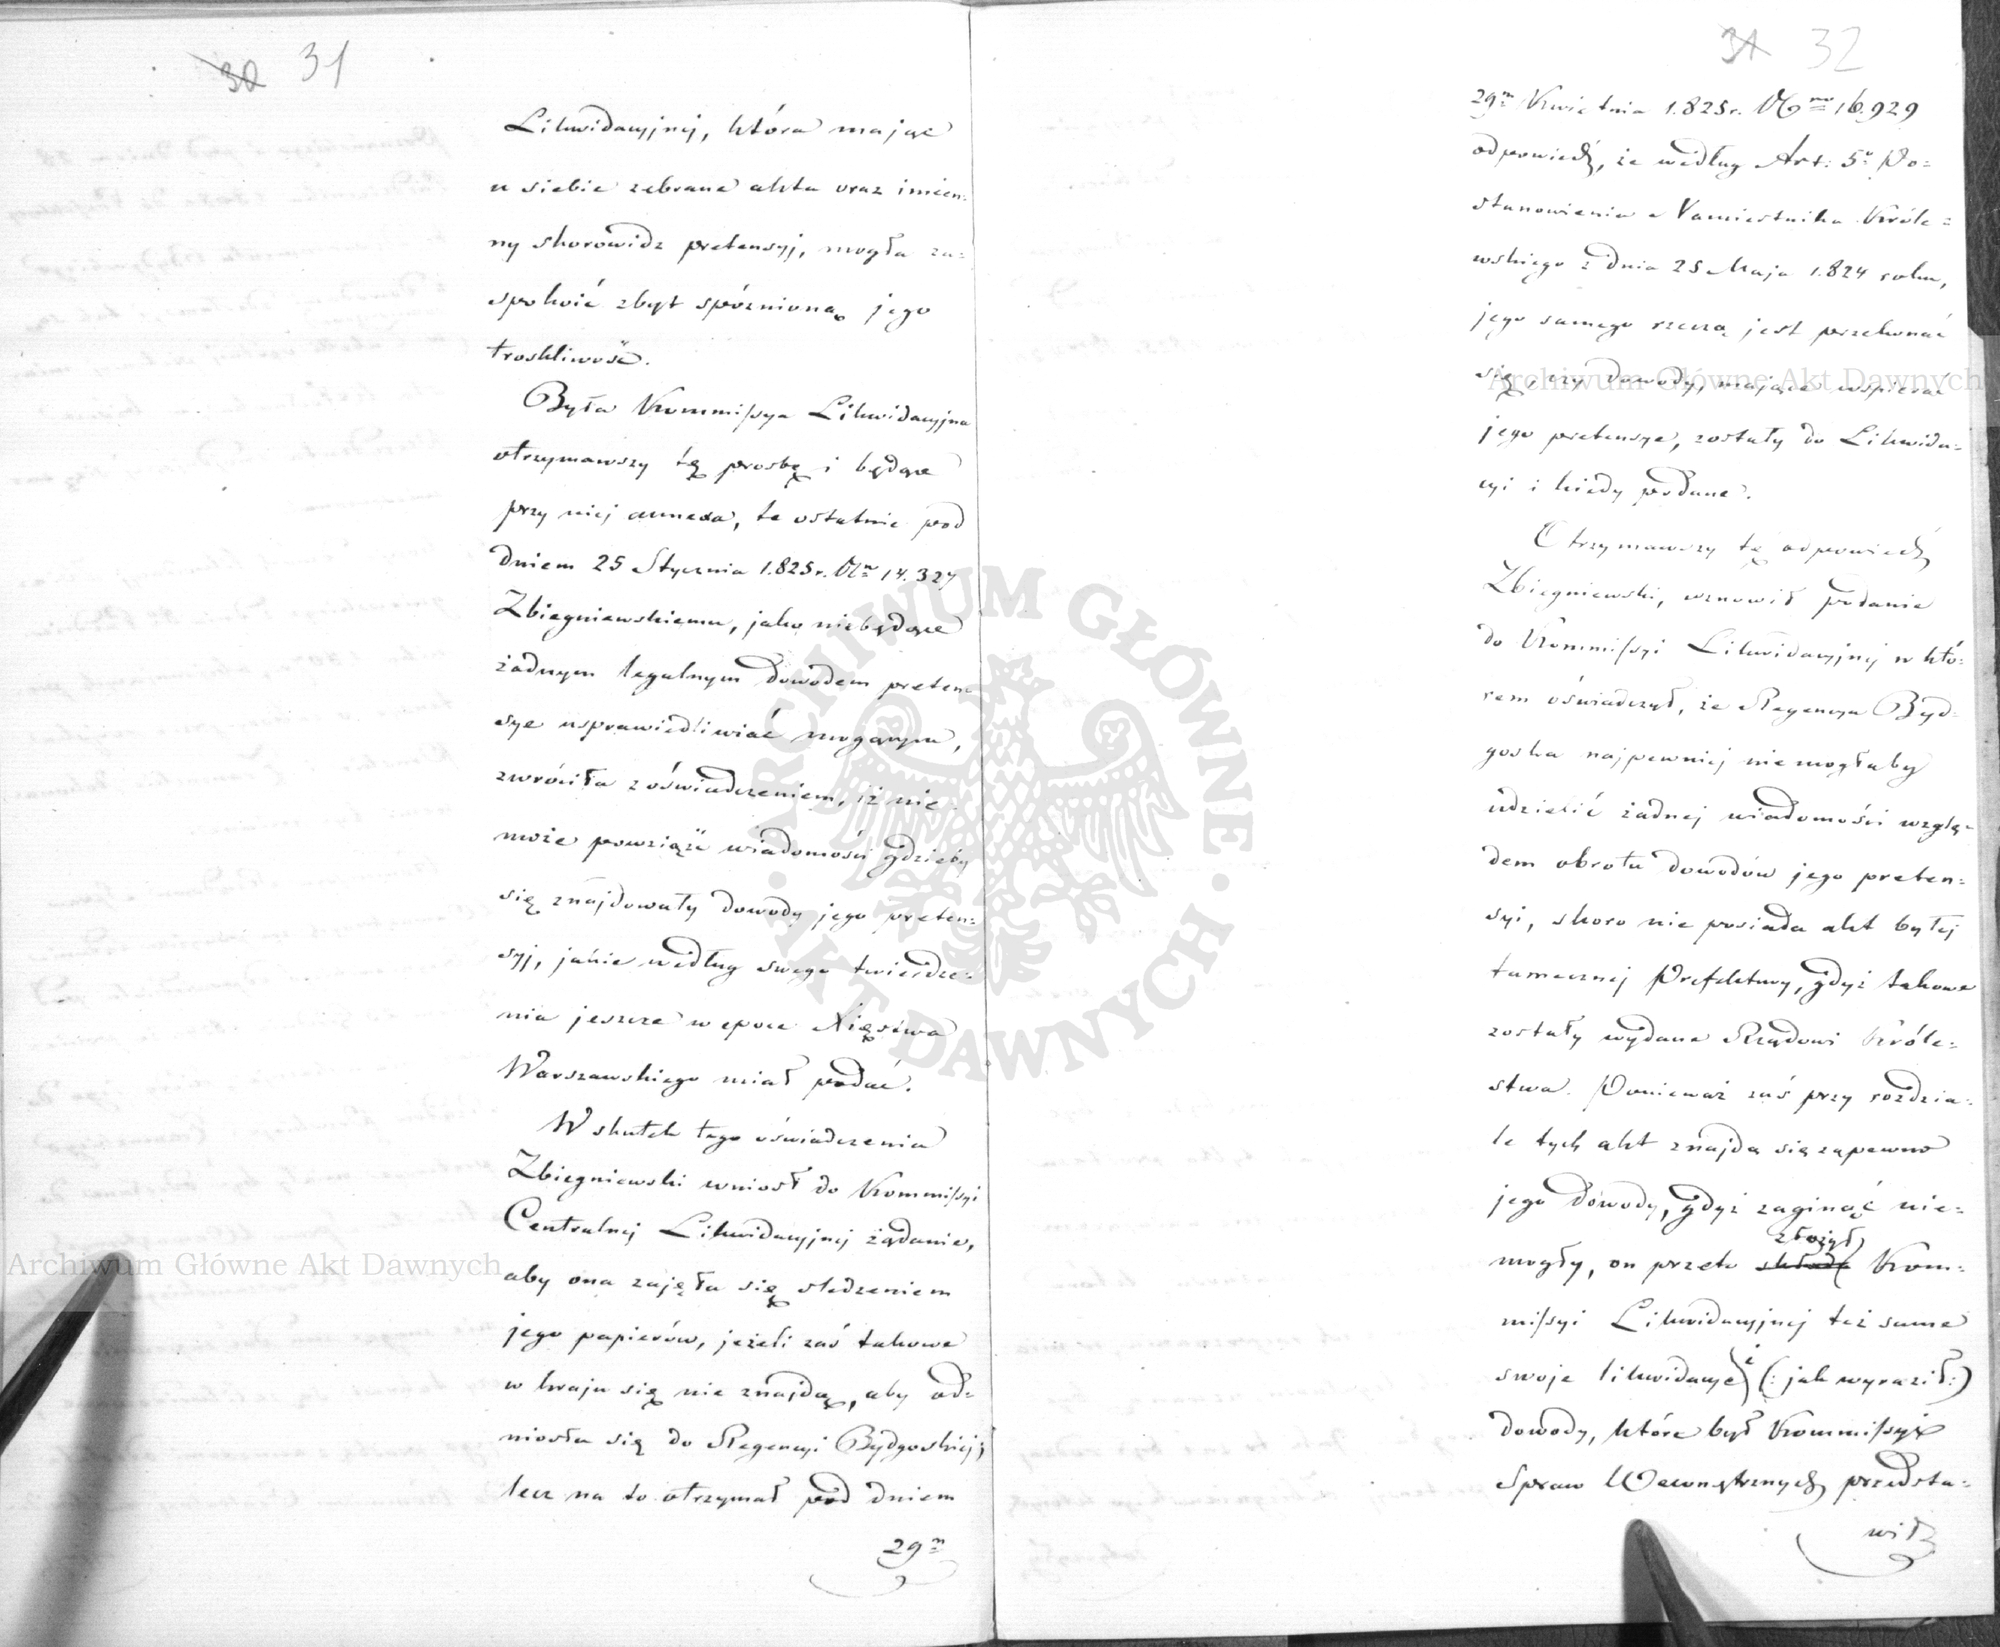 30 31
Likwidacyjnej, która mając
u siebie zebrane akta oraz imien:
ny skorowidz pretensyj, mogła za:
spokoić zbyt spóznioną jego
troskliwość.
Była Kommissya Likwidacyjna
otrzymawszy tę prosbę i będące
przy niej annexa, te ostatnie pod
dniem 25 Stycznia 1.825 r. N 14.327
Zbiegniewskiemu, jako niebędące
żadnym legalnym dowodem preten
sye usprawiedliwiać mogącym,
zwróciła z oświadczeniem, iż nie
może powziąść wiadomości gdzieby
się znajdowały dowody jego preten:
syj, jakie według swego twierdze:
nia jeszcze w epoce Xięstwa
Warszawskiego miał podać.
W skutek tego oświadczenia
Zbiegniewski wniosł do Kommissyi
Centralnej Likwidacyjnej żądanie,
aby ona zajęła się sledzeniem
jego papierów, jeżeli zaś takowe
w kraju się nie znajdą, aby od:
niosła się do Regencyi Bydgoskiej;
lecz na to otrzymał pod dniem
29 m
31 32
29 m Kwietnia 1.825 r. No 16.929
odpowiedź, że według Art: 5 o Po:
stanowienia Xcia Namiestnika Króle:
wskiego z dnia 25 Maja 1.824 roku,
jego samego rzeczą jest przekonać
się, czy dowody, mające wspierać
jego pretensye, zostały do Likwida:
cyi i kiedy podane.
Otrzymawszy tę odpowiedź
Zbiegniewski, wznowił podanie
do Kommissyi Likwidacyjnej w któ:
rem oświadczył, że Regencya Byd:
goska najpewniej niemogłaby
udzielić żadnej wiadomości wzglę:
dem obrotu dowodów jego preten:
syi, skoro nie posiada akt byłej
tamecznej Prefektury, gdyż takowe
zostały wydane Rządowi Króle:
stwa. Ponieważ zaś przy rozdzia:
le tych akt znajdą się zapewno
jego dowody, gdyż zaginąć nie:
złożył
mogły, on przeto składa Kom:
missyi Likwidacyjnej też same
swoje likwidacye i (: jak wyraził :)
dowody, które był Kommissyi
Spraw Wewnętrznych przedsta:
wił
Archiwum Główne Akt Dawnych
Archiwum Główne Akt Dawnych
ARCHIWUM GŁÓWNE · AKT DAWNYCH ·